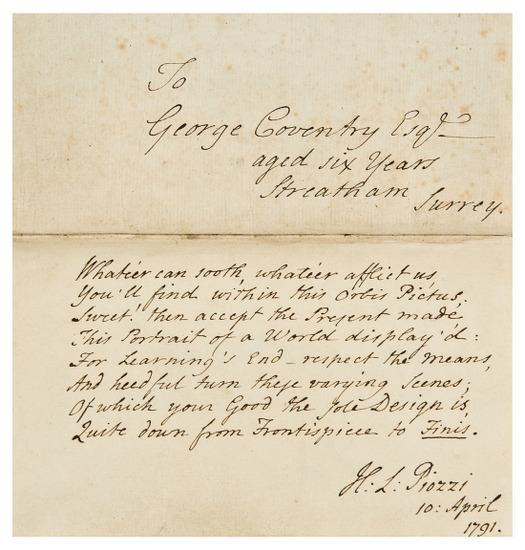 To
George Coventry Esqr.
aged six Years
Streatham
Surrey.
Whate'er can sooth, whate'er afflict us
You'll find within this Orbis Pictus;
Sweet! then accept the Present made
This Portrait of a World display'd:
For Learning's End – respect the means,
And heedful turn these varying Scenes;
Of which your Good the sole Design is,
Quite down from Frontispiece to Finis.
H: L: Piozzi
10: April
1791.